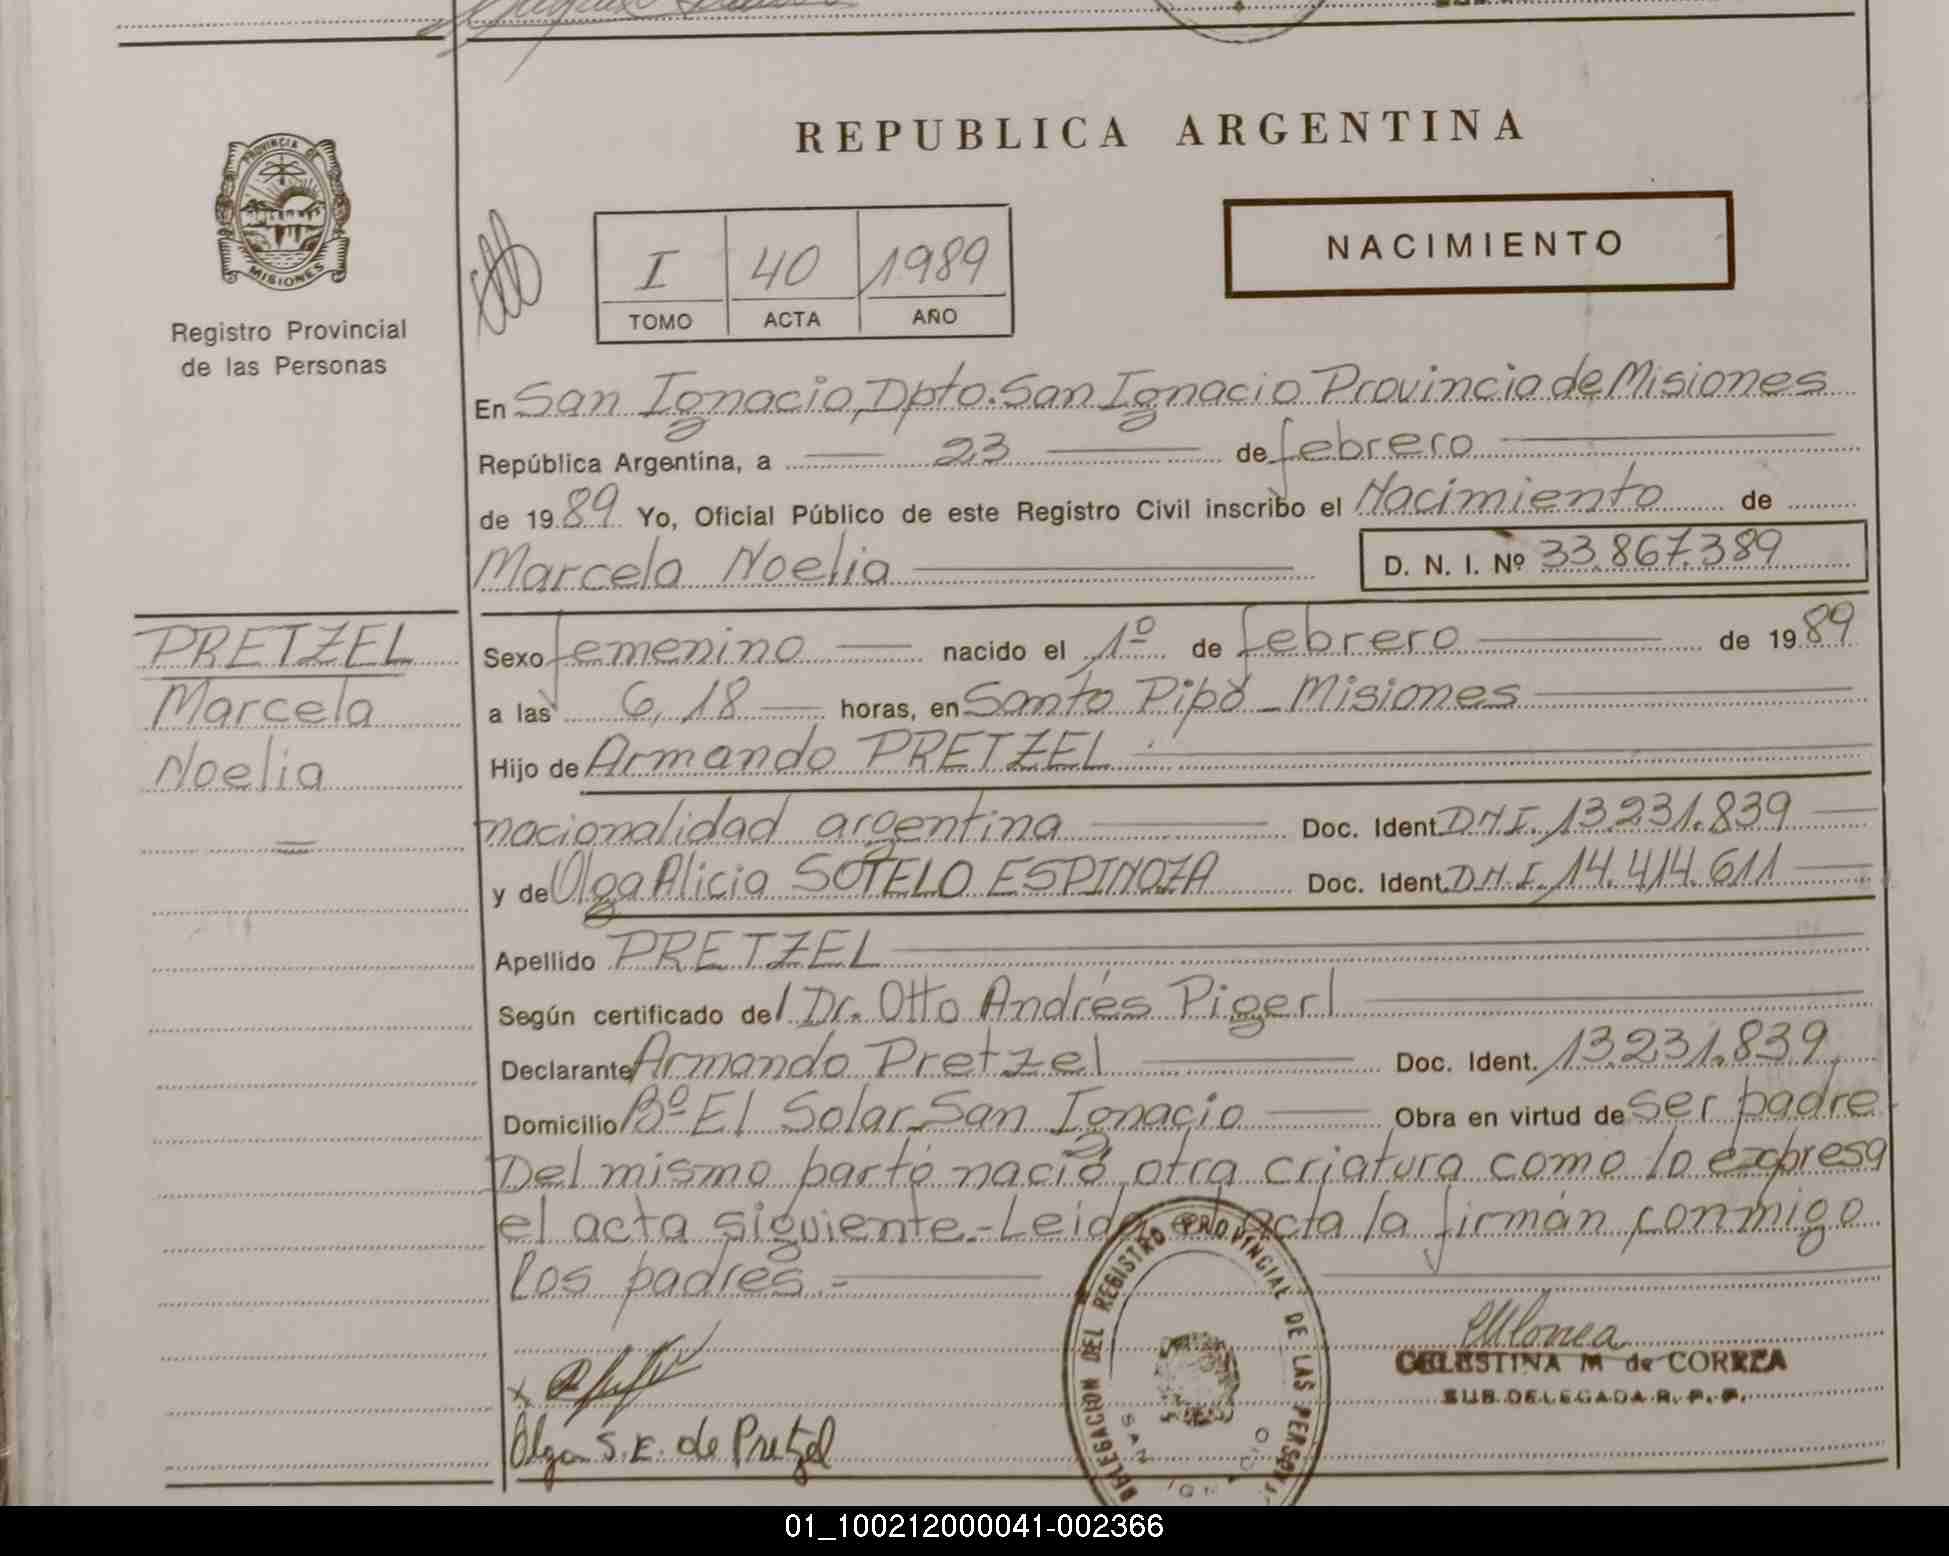 REPUBLICA ARGENTINA
PROVINCIA DE
MISIONES
Registro Provincial
de las Personas
I 40 1989
TOMO ACTA AÑO
NACIMIENTO
En San Ignacio, Dpto. San Ignacio Provincia de Misiones
República Argentina, a 23 de febrero
de 1989 Yo, Oficial Público de este Registro Civil inscribo el Nacimiento de
Marcela Noelia D. N. I. Nº 33.867.389
PRETZEL
Marcela
Noelia
Sexo femenino nacido el 1º de febrero de 1989
a las 6,18 horas, en Santo Pipó - Misiones
Hijo de Armando PRETZEL
nacionalidad argentina Doc. Ident. DNI. 13.231.839
y de Olga Alicia SOTELO ESPINOZA Doc. Ident. DNI. 14.414.611
Apellido PRETZEL
Según certificado del Dr. Otto Andrés Pigerl
Declarante Armando Pretzel Doc. Ident. 13.231.839
Domicilio Bº El Solar-San Ignacio Obra en virtud de ser padre
Del mismo parto nació otra criatura como lo expresa
el acta siguiente.- Leida el acta la firmán conmigo
los padres.-
CELESTINA M de CORREA
SUB DELEGADA R. P. P.
Olga S.E. de Pretzel
DELEGACION DEL REGISTRO PROVINCIAL DE LAS
SAN
01_100212000041-002366